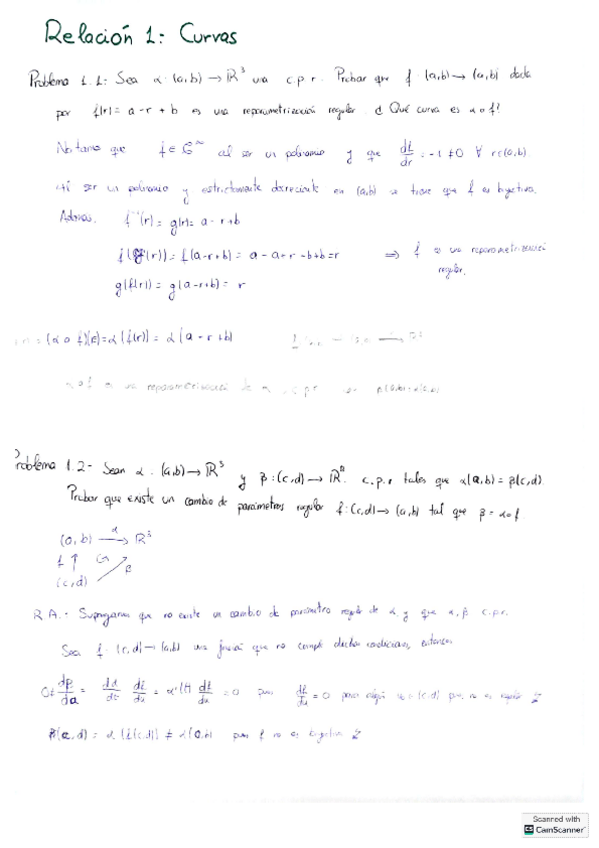 Relación 1: Curvas
Problema 1.1: Sea α: (a,b) → ℝ³ una c.p.r. Probar que f: (a,b) → (a,b) dada
por f(r) = a - r + b es una reparametrización regular. ¿Qué curva es α∘f?
Notamos que f ∈ C^∞ al ser un polinomio y que df/dr = -1 ≠ 0 ∀ r ∈ (a,b)
Al ser un polinomio y estrictamente decreciente en (a,b) se tiene que f es biyectiva.
Además, f⁻¹(r) = g(r) = a - r + b
f(g(r)) = f(a-r+b) = a - a + r - b + b = r ⇒ f es una reparametrización
regular.
g(f(r)) = g(a-r+b) = r
= (α∘f)(r) = α(f(r)) = α(a - r + b)
α∘f es una reparametrización de α c.p.r.
Problema 1.2- Sean α: (a,b) → ℝ³ y β: (c,d) → ℝ³ c.p.r tales que α(a,b) = β(c,d).
Probar que existe un cambio de parámetros regular f: (c,d) → (a,b) tal que β = α∘f.
(a,b) α → ℝ³
f ↑ β
(c,d)
R.A.- Supongamos que no existe un cambio de parámetro regular de α y que α, β c.p.r.
Sea f: (c,d) → (a,b) una función que no cumple dichas condiciones, entonces
0 ≠ dβ/du = dα/dt dt/du = α'(t) dt/du = 0 pues dt/du = 0 para algún ∈ (c,d) pues no es regular
β(c,d) = α(f(c,d)) ≠ α(a,b) pues f no es biyectiva
Scanned with
CamScanner